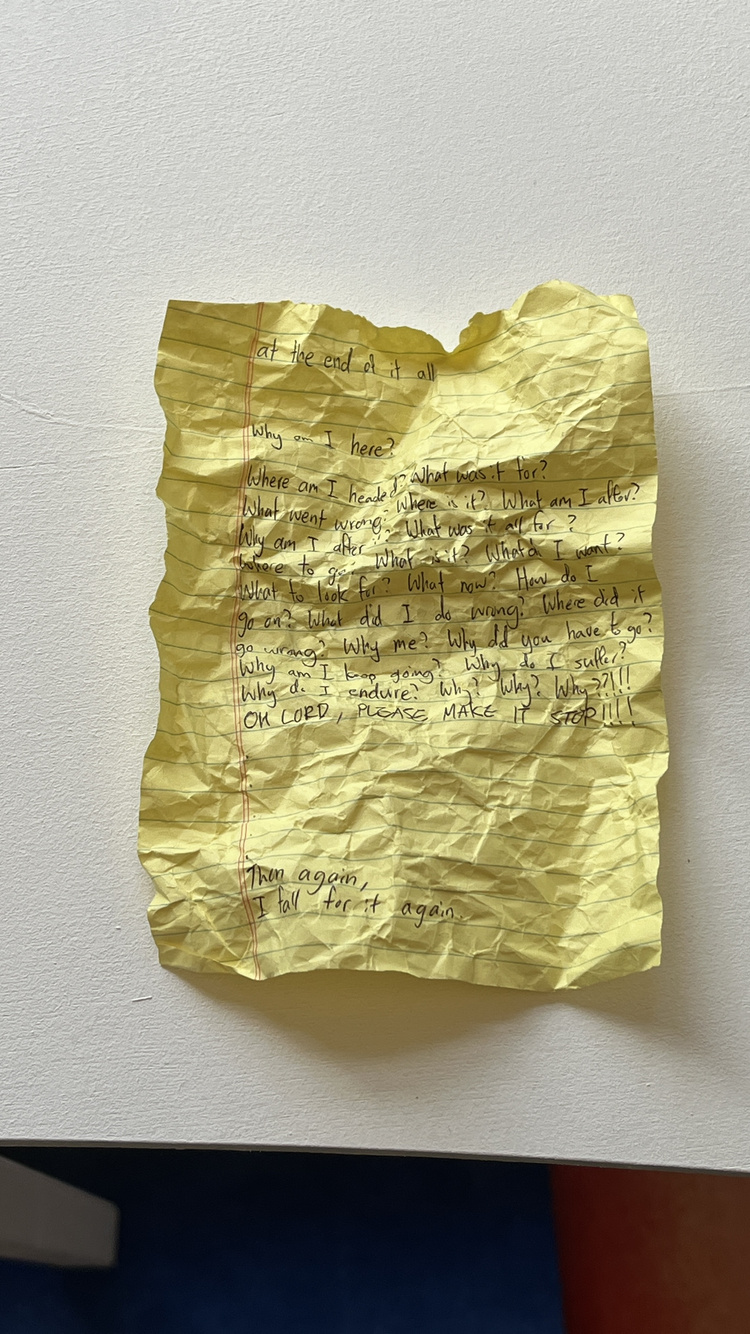 at the end of it all
Why am I here?
Where am I headed? What was it for?
What went wrong? Where is it? What am I after?
Why am I after it? What was it all for?
Where to go? What is it? What do I want?
What to look for? What now? How do I
go on? What did I do wrong? Where did it
go wrong? Why me? Why did you have to go?
Why am I keep going? Why do I suffer?
Why do I endure? Why? Why? Why??!!!
OH LORD, PLEASE MAKE IT STOP!!!!
.
.
.
.
Then again,
I fall for it again.